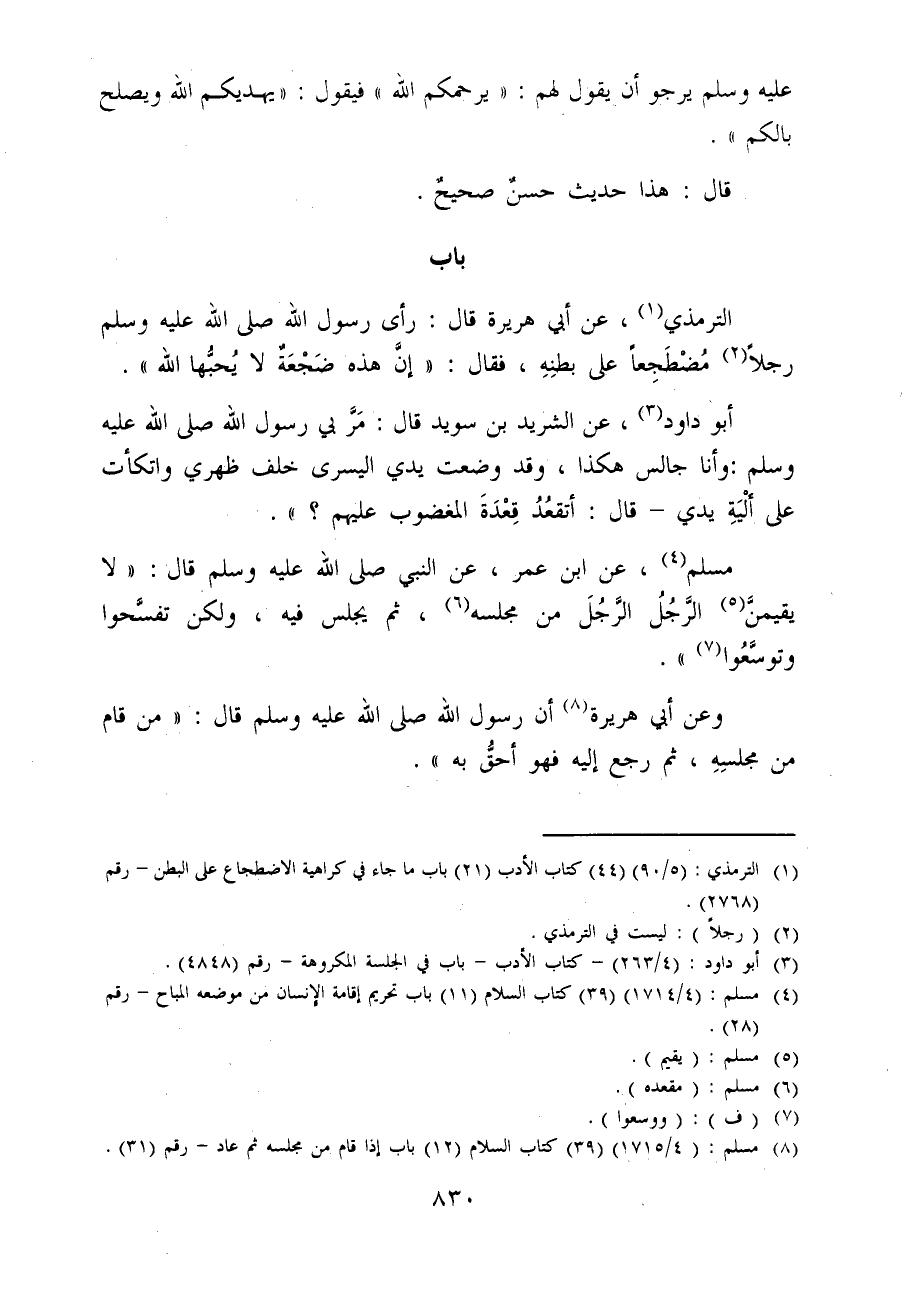 عليه وسلم يرجو أن يقول لهم : « يرحمكم الله » فيقول : « يهديكم الله ويصلح
بالكم » .
قال : هذا حديث حسنٌ صحيحٌ .
باب
الترمذي(١) ، عن أبي هريرة قال : رأى رسول الله صلى الله عليه وسلم
رجلاً(٢) مُضْطَجِعاً على بطنِهِ ، فقال : « إنَّ هذه ضَجْعَةٌ لا يُحبُّها الله » .
أبو داود(٣) ، عن الشريد بن سويد قال : مَرَّ بي رسول الله صلى الله عليه
وسلم :وأنا جالس هكذا ، وقد وضعت يدي اليسرى خلف ظهري واتكأت
على أَلْيَةِ يدي – قال : أتقعُدُ قِعْدَةَ المغضوب عليهم ؟ » .
مسلم(٤) ، عن ابن عمر ، عن النبي صلى الله عليه وسلم قال : « لا
يقيمنَّ(٥) الرَّجُلُ الرَّجُلَ من مجلسه(٦) ، ثم يجلس فيه ، ولكن تفسَّحوا
وتوسَّعُوا(٧) » .
وعن أبي هريرة(٨) أن رسول الله صلى الله عليه وسلم قال : « من قام
من مجلسِهِ ، ثم رجع إليه فهو أحقُّ به » .
(١) الترمذي : (٩٠/٥) (٤٤) كتاب الأدب (٢١) باب ما جاء في كراهية الاضطجاع على البطن – رقم
(٢٧٦٨) .
(٢) ( رجلاً ) : ليست في الترمذي .
(٣) أبو داود : (٢٦٣/٤) – كتاب الأدب – باب في الجلسة المكروهة – رقم (٤٨٤٨) .
(٤) مسلم : (١٧١٤/٤) (٣٩) كتاب السلام (١١) باب تحريم إقامة الإنسان من موضعه المباح – رقم
(٢٨) .
(٥) مسلم : ( يقيم ) .
(٦) مسلم : ( مقعده ) .
(٧) ( ف ) : ( ووسعوا ) .
(٨) مسلم : ( ١٧١٥/٤) (٣٩) كتاب السلام (١٢) باب إذا قام من مجلسه ثم عاد – رقم (٣١) .
٨٣٠